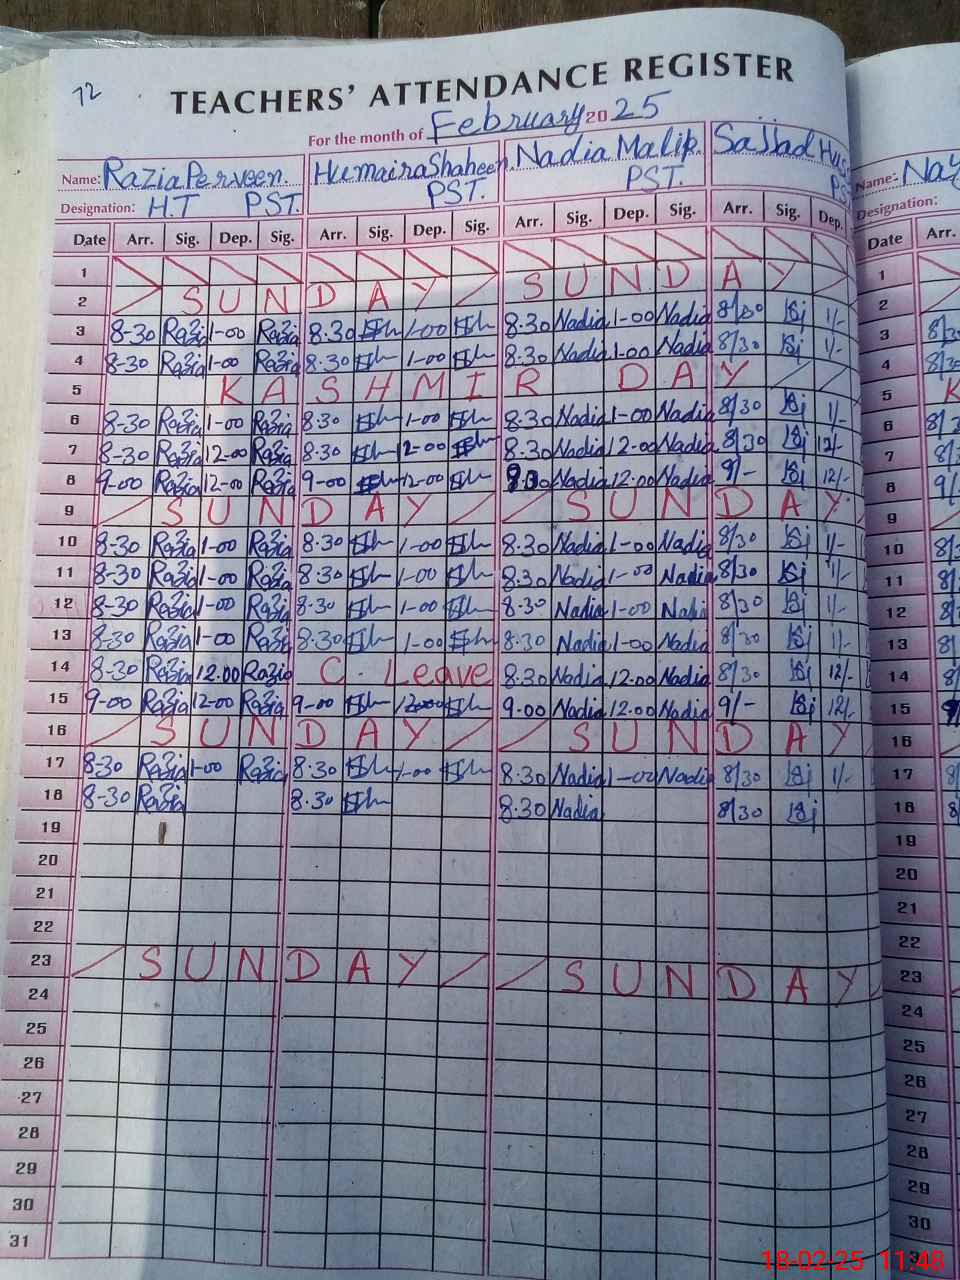 72
TEACHERS' ATTENDANCE REGISTER
For the month of February 2025
Name: Razia Perveen. Humaira Shaheen. Nadia Malik. Sajjad Name:
Designation: H.T PST. PST. PST. Designation:
Date Arr. Sig. Dep. Sig. Arr. Sig. Dep. Sig. Arr. Sig. Dep. Sig. Arr. Sig. Dep. Date Arr.
1 1
2 SUNDAY SUNDAY 2
3 8-30 Razia 1-00 Razia 8.30 1-00 8.30 Nadia 1-00 Nadia 8/30 1/- 3
4 8-30 Razia 1-00 Razia 8.30 1-00 8.30 Nadia 1-00 Nadia 8/30 1/- 4
5 KASHMIR DAY 5 K
6 8-30 Razia 1-00 Razia 8.30 1-00 8.30 Nadia 1-00 Nadia 8/30 1/- 6
7 8-30 Razia 12-00 Razia 8.30 12-00 8.30 Nadia 12-00 Nadia 8/30 12/- 7
8 9-00 Razia 12-00 Razia 9-00 12-00 Nadia 12.00 Nadia 9/- 12/- 8
9 SUNDAY SUNDAY 9
10 8-30 Razia 1-00 Razia 8.30 1-00 8.30 Nadia 1-00 Nadia 8/30 1/- 10
11 8-30 Razia 1-00 Razia 8.30 1-00 8.30 Nadia 1-00 Nadia 8/30 1/- 11
12 8-30 Razia 1-00 Razia 8.30 1-00 8.30 Nadia 1-00 Nadia 8/30 1/- 12
13 8-30 Razia 1-00 Razia 8.30 1-00 8.30 Nadia 1-00 Nadia 8/30 1/- 13
14 8-30 Razia 12.00 Razia C. Leave 8.30 Nadia 12.00 Nadia 8/30 12/- 14
15 9-00 Razia 12-00 Razia 9-00 9.00 Nadia 12.00 Nadia 9/- 12/- 15
16 SUNDAY SUNDAY 16
17 8-30 Razia 1-00 Razia 8.30 1-00 8.30 Nadia 1-00 Nadia 8/30 1/- 17
18 8-30 Razia 8.30 8.30 Nadia 8/30 18
19 19
20 20
21 21
22 22
23 SUNDAY SUNDAY 23
24 24
25 25
26 26
27 27
28 28
29 29
30 30
31
18-02-25 11:48